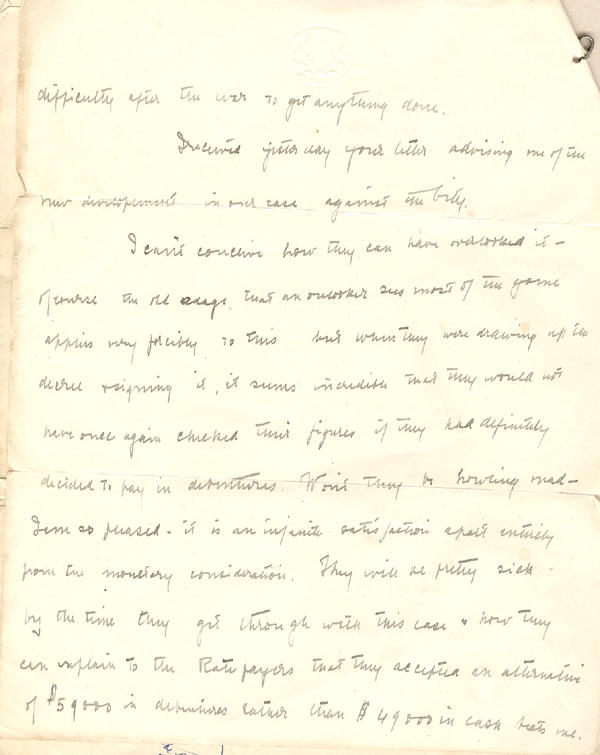 difficulty after the war to get anything done.
I received yesterday your letter advising me of the
new developement in our case against the City.
I can't conceive how they can have overlooked it -
of course the old that an onlooker sees most of the game
applies very forcibly to this but when they were drawing up the
decree & signing it, it seems incredible that they would not
have once again checked their figures if they had definitely
decided to pay in debentures. Won't they be howling mad -
I am so pleased - it is an infinite satisfaction apart entirely
from the monetary consideration. They will be pretty sick
by the time they get through with this case & how they
can explain to the Rate payers that they accepted an alternative
of $59000 in debentures rather than $49000 in cash beats me.